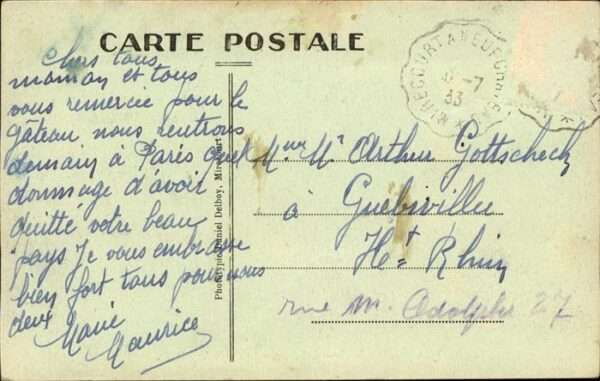 CARTE POSTALE
Chers tous
maman et tous
vous remercie pour le
gâteau nous rentrons
demain à Paris quel
dommage d'avoir
quitté votre beau
pays Je vous embrasse
bien fort tous pour nous
deux
Maurice
MIRECOURT A NEUFCH
-7
33
Phototypie Daniel Delboy, Mirecourt
Mr Arthur Gottscheck
à
Guebwiller
Ht Rhin
rue M. Adolphe 27